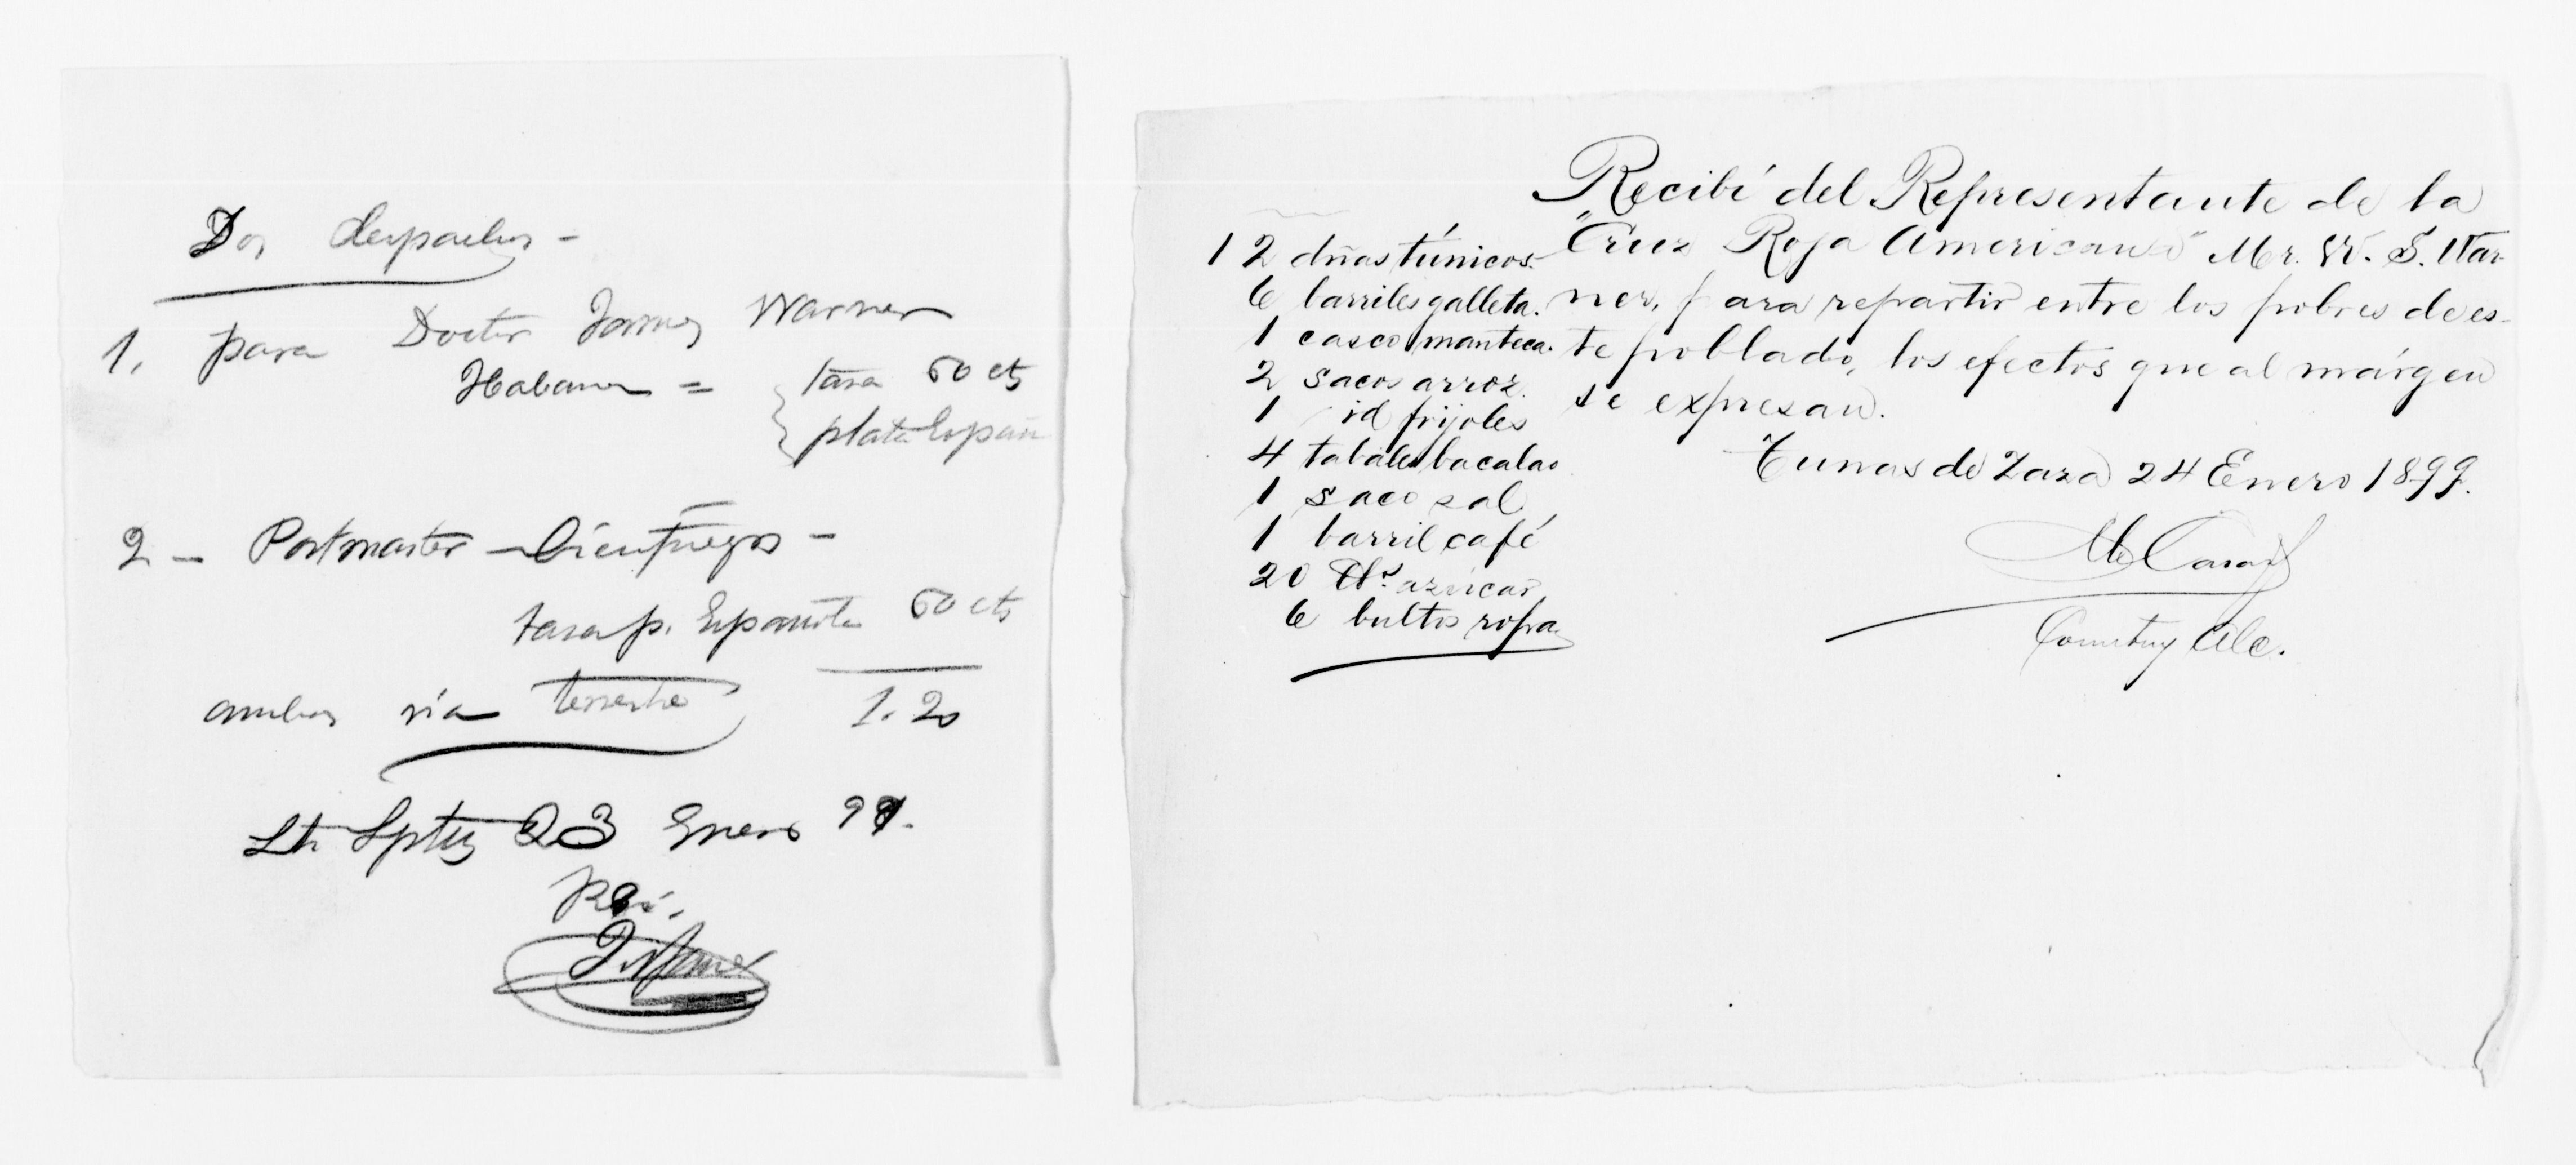 Dos despachos -
1. para Doctor James Warner
Habana = tasa 60 cts
plata Españ
2 - Postmaster - Cienfuegos -
tasa p. Española 60 cts
ambos via terrestre 1.20
23 Enero 99.
Recibí del Representante de la
"Cruz Roja Americana" Mr. W. S. War-
ner, para repartir entre los pobres de es-
te poblado, los efectos que al márgen
se expresan.
Tunas de Zaza 24 Enero 1899.
12 dñas túnicos.
6 barriles galleta.
1 casco manteca.
2 sacos arroz.
1 id frijoles
4 tabales bacalao
1 saco sal
1 barril café
20 azúcar
6 bultos ropa
Alc.